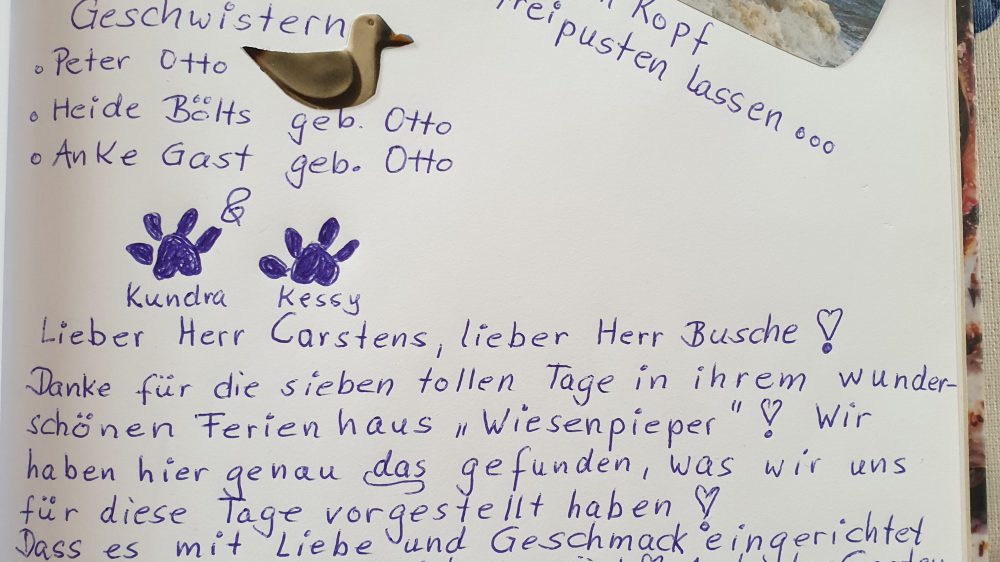 Geschwistern
• Peter Otto
• Heide Bölts geb. Otto
• Anke Gast geb. Otto
&
Kundra Kessy
Kopf
frei pusten lassen...
Lieber Herr Carstens, lieber Herr Busche!
Danke für die sieben tollen Tage in ihrem wunder-
schönen Ferienhaus „Wiesenpieper"! Wir
haben hier genau das gefunden, was wir uns
für diese Tage vorgestellt haben ♡
Dass es mit Liebe und Geschmack eingerichtet